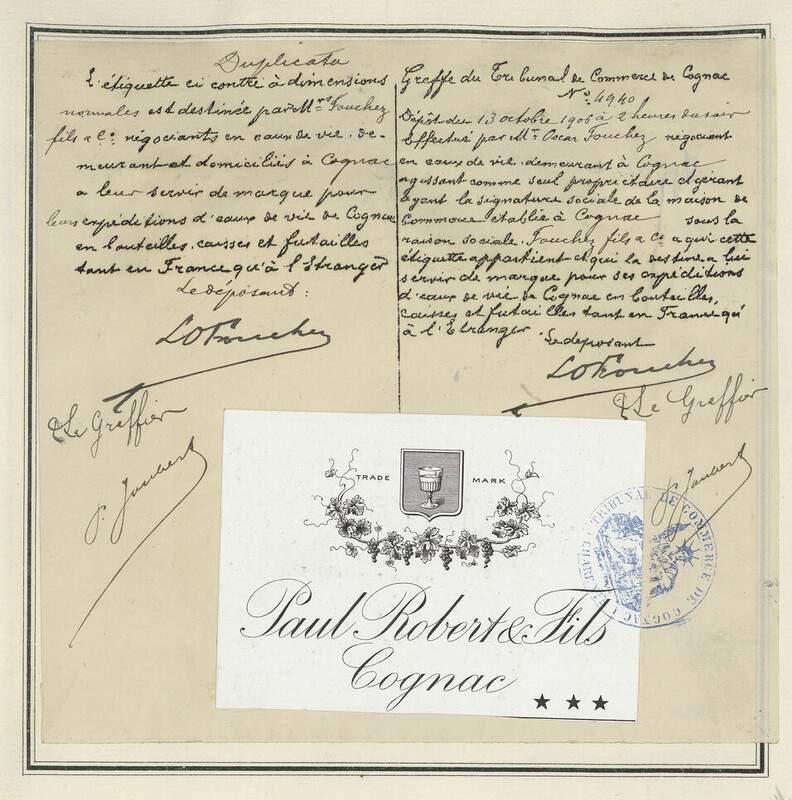 Duplicata
L'étiquette ci contre à dimensions
normales est destinée par Mrs Fouchez
fils & Co négociants en eaux de vie, de-
meurant et domiciliés à Cognac
a leur servir de marque pour
leurs expéditions d'eaux de vie de Cognac
en bouteilles, caisses et futailles
tant en France qu'à l'Etranger
Le déposant:
LO Fouchez
Le Greffier
Greffe du Tribunal de Commerce de Cognac
No 4940
Dépôt du 13 octobre 1906 à 2 heures du soir
Effectué par Mr Oscar Fouchez négociant
en eaux de vie, demeurant à Cognac
agissant comme seul propriétaire et gérant
ayant la signature sociale de la maison de
Commerce établie à Cognac sous la
raison sociale, Fouchez fils & Co a qui cette
étiquette appartient et qui la destine a lui
servir de marque pour ses expéditions
d'eaux de vie de Cognac en bouteilles,
caisses et futailles tant en France qu'
à l'Etranger
Le déposant
LO Fouchez
Le Greffier
TRADE MARK
Paul Robert & Fils
Cognac
TRIBUNAL DE COMMERCE DE COGNAC